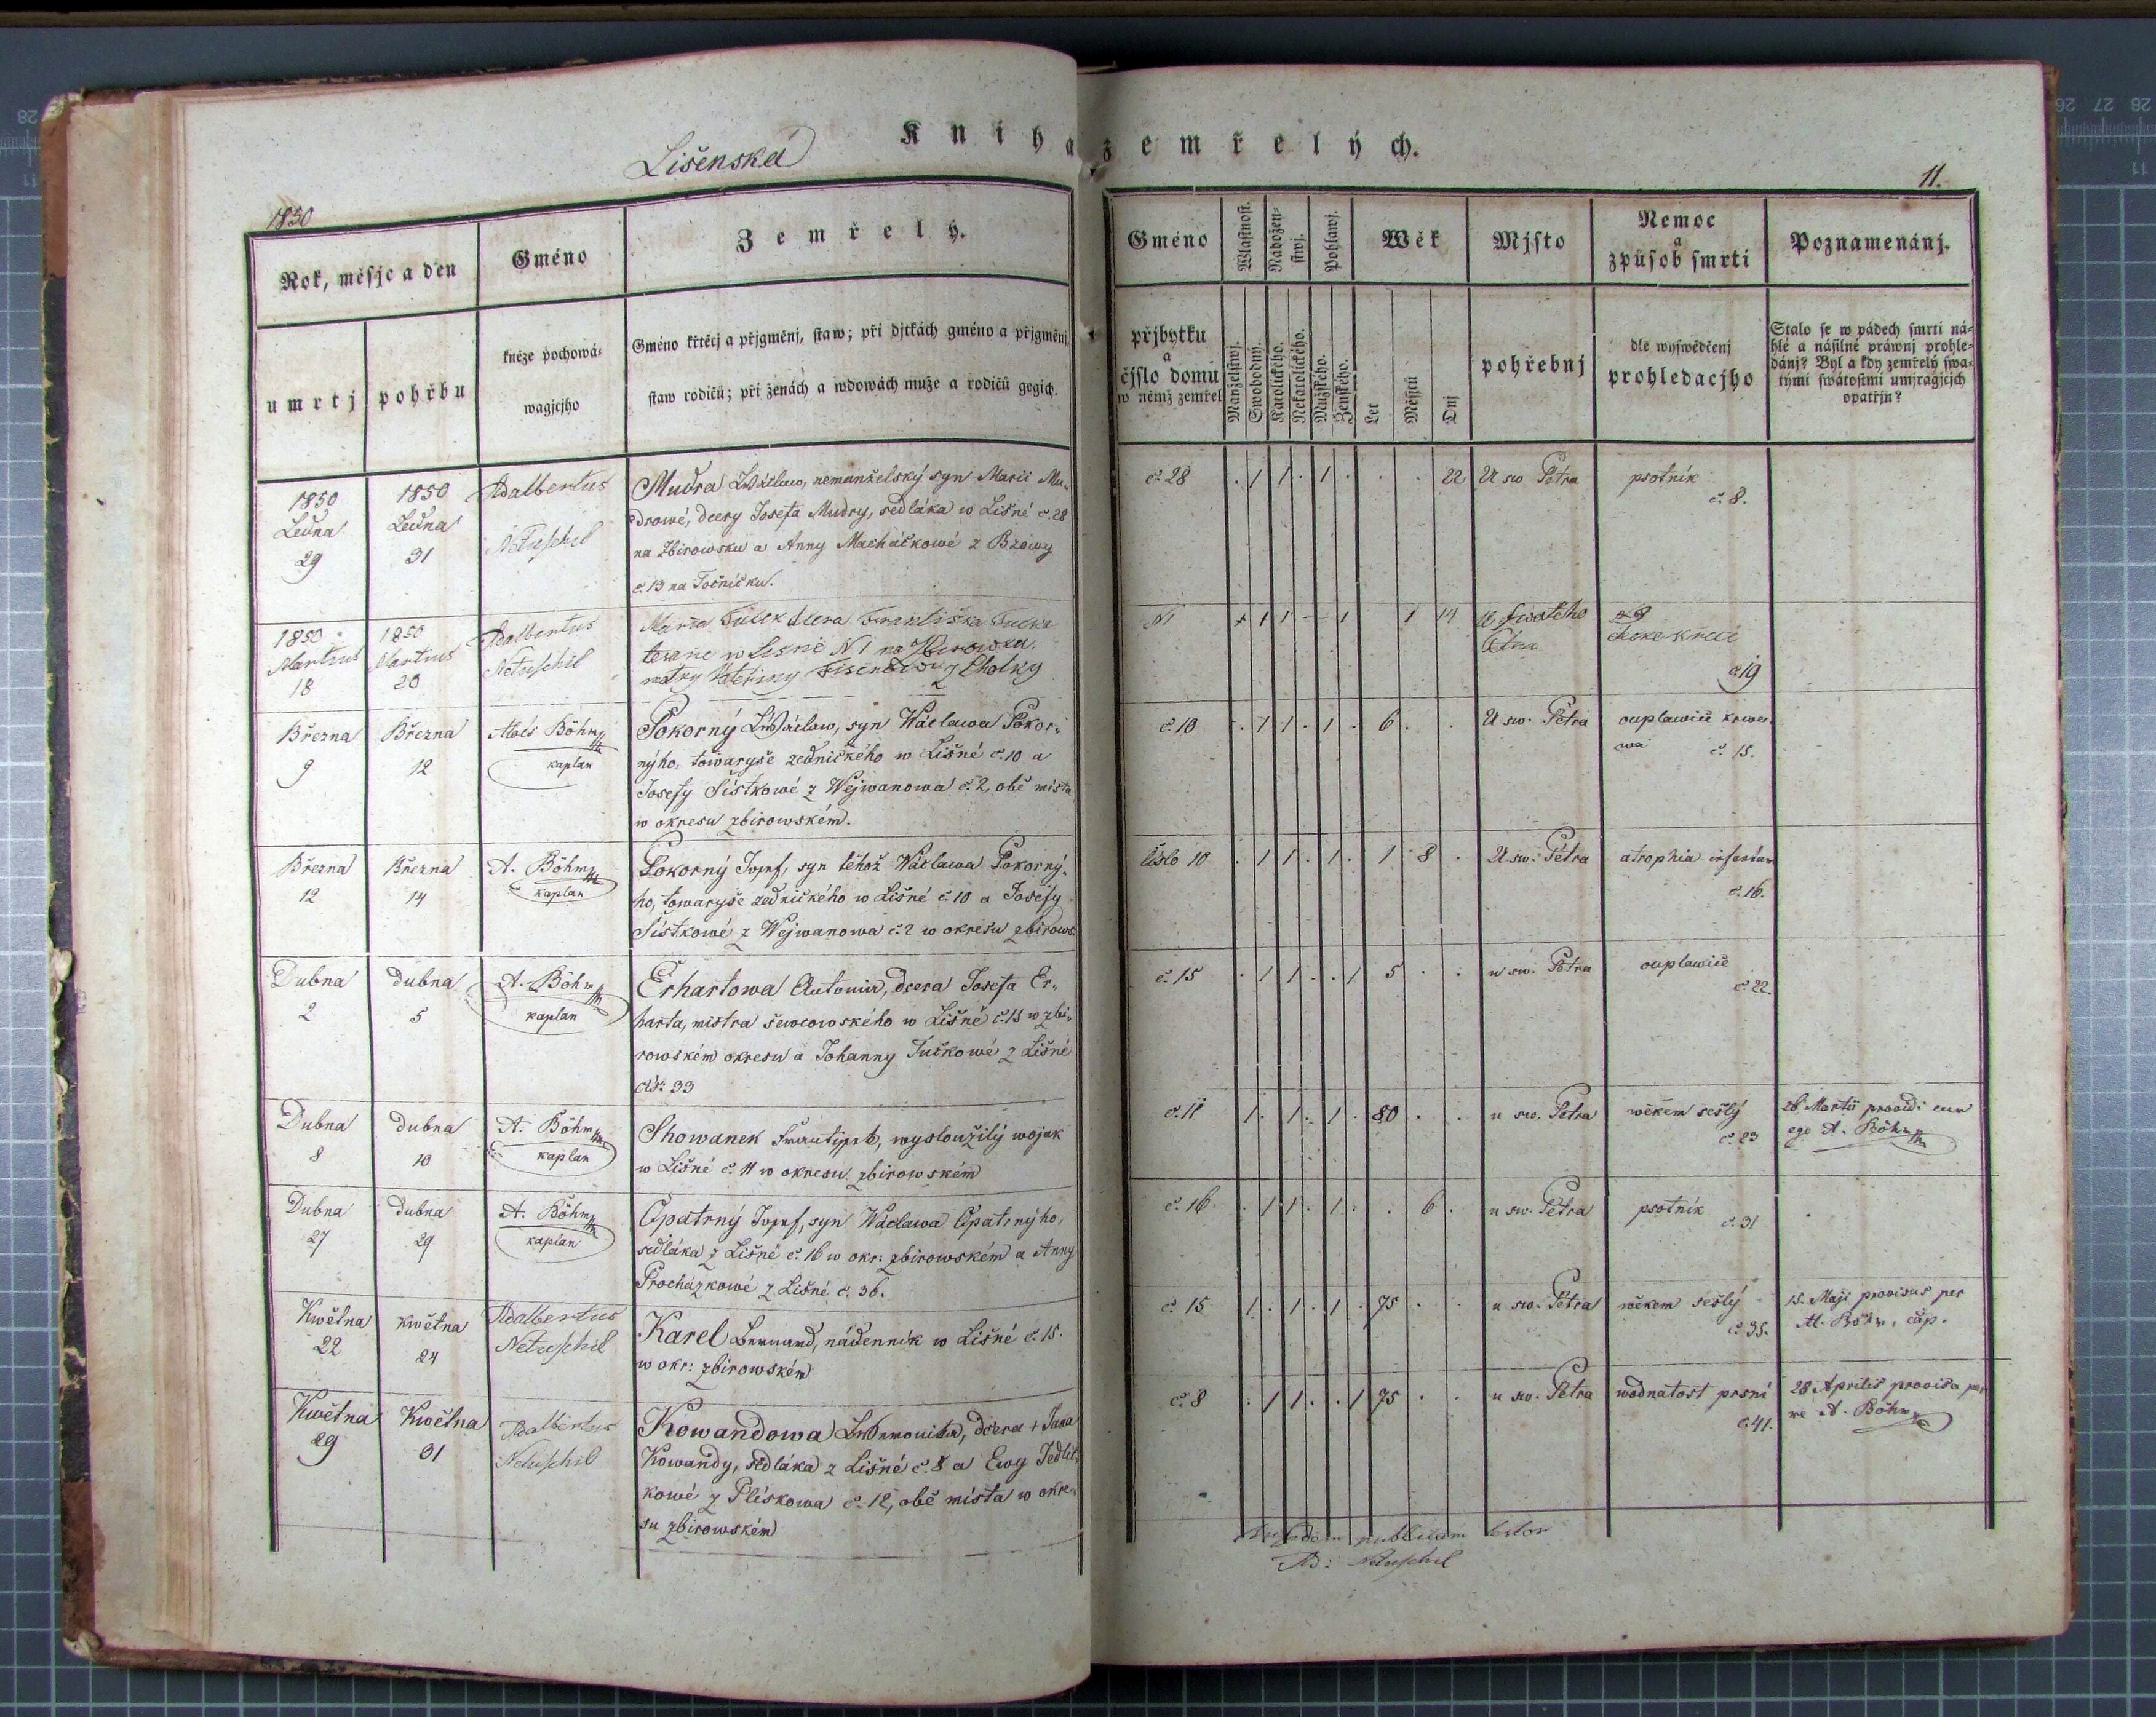 Kniha zemřelých.
Lišenská
11.
1850
Rok, měsjc a den
Gméno
Zemřelý.
Gméno
Wlastnost.
Nábožen-
stwj.
Pohlawj.
Wěk
Mjsto
Nemoc
a
způsob smrti
Poznamenánj.
umrtj
pohřbu
kněze pochowá-
wagjcjho
Gméno křtěcj a přjgměnj, staw; při djtkách gméno a přjgměnj,
staw rodičů; při ženách a wdowách muže a rodičů gegich.
přjbytku
a
čjslo domu
w němž zemřel
Manželstwj.
Swobodný.
Katolického.
Nekatolického.
Mužského.
Ženského.
Let
Měsjců
Dnj
pohřebnj
dle wyswědčenj
prohledacjho
Stalo se w pádech smrti ná-
hlé a násilné práwnj prohle-
dánj? Byl a kdy zemřelý swa-
tými swátostmi umjragjcjch
opatřjn?
1850 Ledna 29
1850 Ledna 31
Adalbertus
Netuschil
Mudra Wáclaw, nemanželský syn Marii Mu-
drowé, dcery Josefa Mudry, sedláka w Lišné č. 28
na Zbirowsku a Anny Macháčkowé z Bzowy
č. 13 na Točníčku.
č. 28 . 1 1 . 1 . . . 22 U sw Petra psotník
č. 8.
1850 Martius 18
1850 Martius 20
Adalbertus
Netuschil
dcera Františka
w Lisnie N 1 na
N1 1 1 1 1 14
č 19
Března 9
Března 12
Alois Böhm
kaplan
Pokorný Wáclaw, syn Wáclawa Pokor-
nýho, towaryše zednického w Lišné č. 10 a
Josefy Sístkowé z Wejwanowa č. 2, obě místa
w okresu zbirowském.
č. 10 . 1 1 . 1 . 6 . . U sw. Petra ouplawice krwa-
wá č. 15.
Března 12
Března 14
A. Böhm
kaplan
Pokorný Josef, syn téhož Wáclawa Pokorný-
ho, towaryše zednického w Lišné č. 10 a Josefy
Sístkowé z Wejwanowa č. 2 w okresu zbirows.
číslo 10 . 1 1 . 1 . 1 8 . U sw. Petra atrophia infantum
č. 16.
Dubna 2
dubna 5
A. Böhm
kaplan
Erhartowa Antonia, dcera Josefa Er-
harta, mistra šewcowského w Lišné č. 15 w zbi-
rowském okresu a Johanny Tučkowé z Lišné
čís: 33
č. 15 . 1 1 . . 1 5 . . u sw. Petra ouplawice
č. 22.
Dubna 8
dubna 10
A. Böhm
kaplan
Showanek František, wysloužilý wojak
w Lišné č. 11 w okresu zbirowském
č. 11 1 . 1 . 1 . 80 . . u sw. Petra wěkem sešlý
č. 23
26. Martii providi eum
ego A. Böhm
Dubna 27
dubna 29
A. Böhm
kaplan
Opatrný Josef, syn Wáclawa Opatrnýho,
sedláka z Lišné č. 16 w okr: zbirowském a Anny
Procházkowé z Lišné č. 36.
č. 16 . 1 1 . 1 . . 6 . u sw. Petra psotník
č. 31
Kwětna 22
kwětna 24
Adalbertus
Netuschil
Karel Bernard, nádenník w Lišné č. 15.
w okr: zbirowském
č. 15 1 . 1 . 1 . 75 . . u sw. Petra wěkem sešlý
č. 35.
15. Maji provisus per
A. Böhm, cap.
Kwětna 29
Kwětna 31
Adalbertus
Netuschil
Kowandowa Weronika, dcera + Jana
Kowandy, sedláka z Lišné č. 8 a Ewy Jedlič-
kowé z Plískowa č. 12, obě místa w okre-
su zbirowském
č. 8 . 1 1 . . 1 75 . . u sw. Petra wodnatost prsní
č. 41.
28 Aprilis provisa per
me A. Böhm
fidem publicam testor
Ad: Netuschil